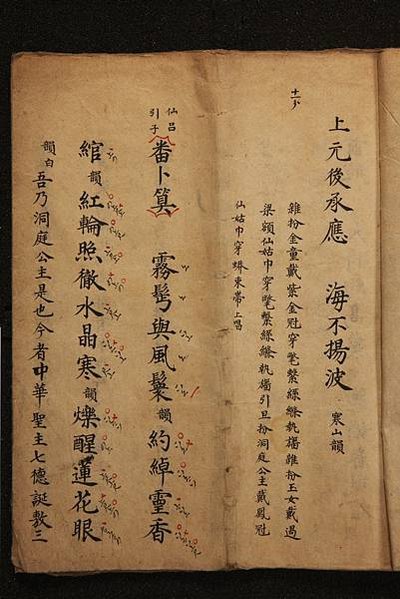 上元後承應 海不揚波 寒山韻
雜扮金童戴紫金冠穿氅繫絲縧執旛雜扮玉女戴過
梁額仙姑巾穿氅繫絲縧執旛引旦扮洞庭公主戴鳳冠
仙姑巾穿蟒束帶上唱
仙呂引子 番卜算 霧髩與風鬟 韻 約綽靈香
綰 韻 紅輪照徹水晶寒 韻 爍醒蓮花眼
韻白 吾乃洞庭公主是也今者中華聖主七德誕敷三